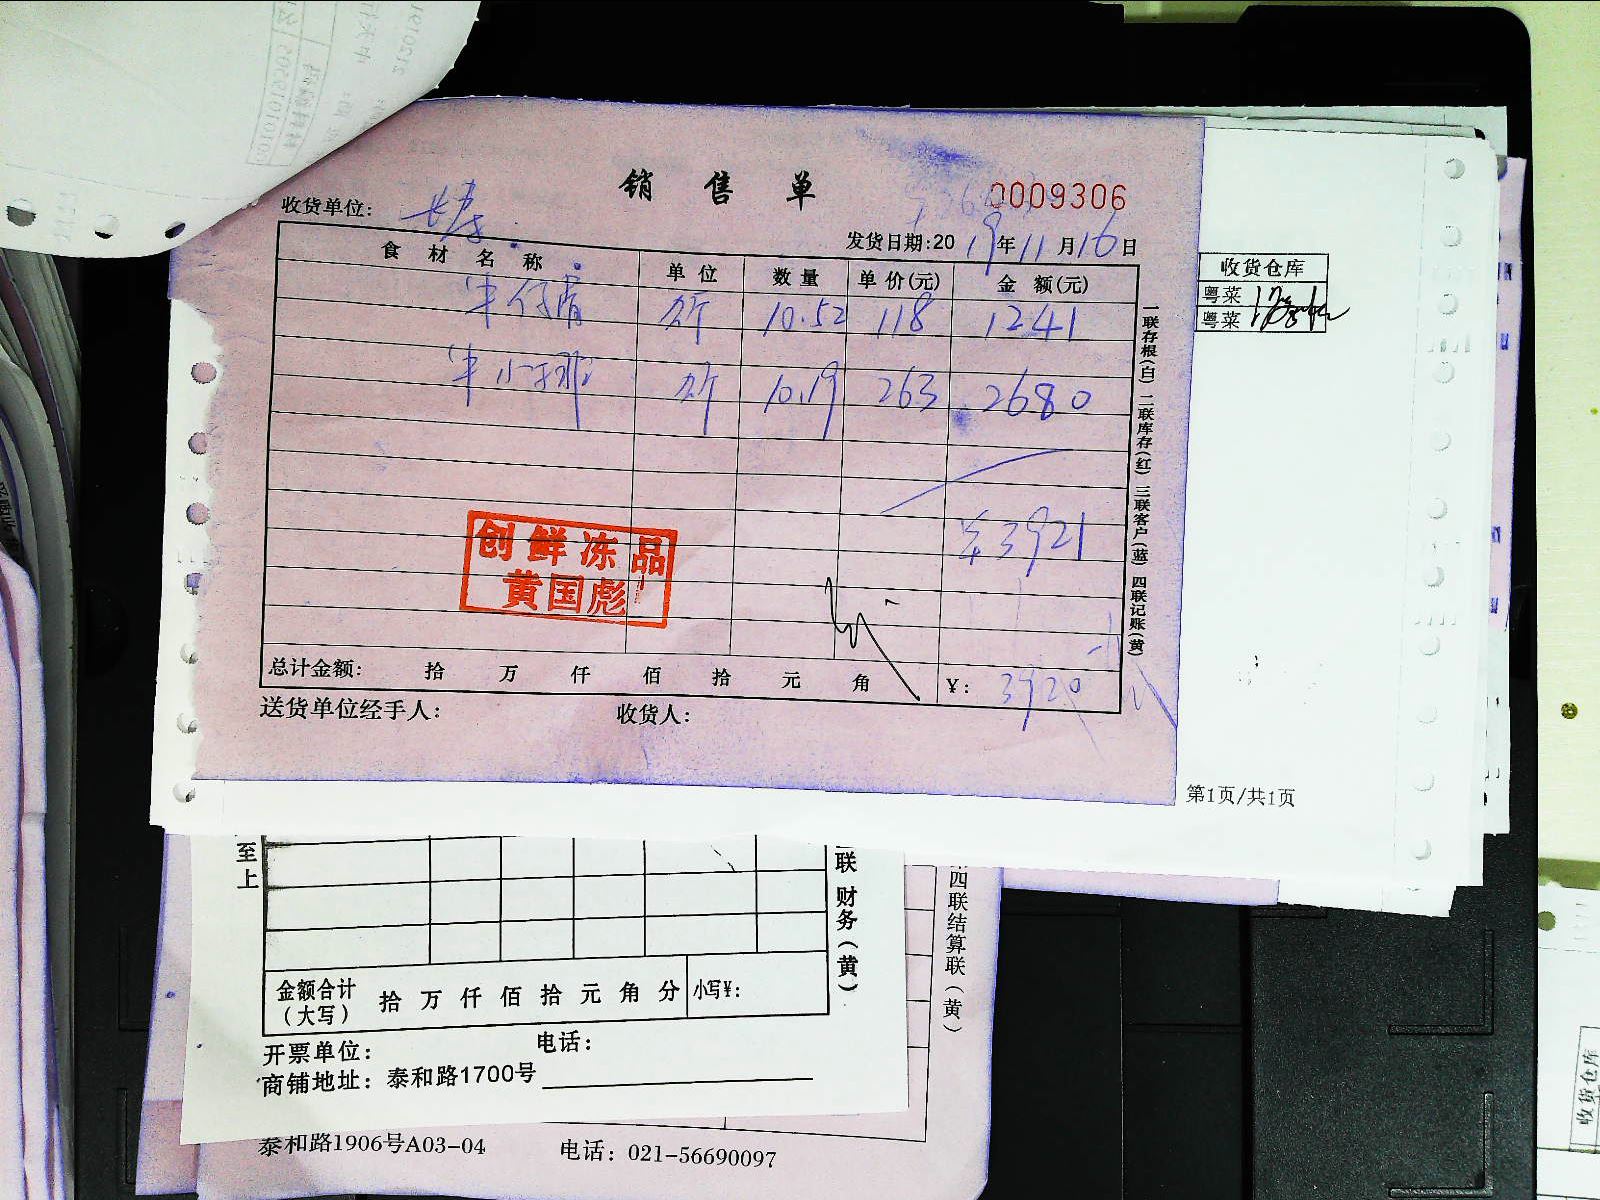 销售单
0009306
收货单位:
发货日期:2019年11月16日
食材名称 单位 数量 单价(元) 金额(元)
牛仔骨 斤 10.52 118 1241
牛小排 斤 10.19 263 2680
3921
创鲜冻品
黄国彪
总计金额: 拾 万 仟 佰 拾 元 角 ¥: 3920
送货单位经手人: 收货人:
一联存根(白) 二联库存(红) 三联客户(蓝) 四联记账(黄)
收货仓库
粤菜
粤菜
第1页/共1页
至上
联 财务(黄)
金额合计(大写) 拾 万 仟 佰 拾 元 角 分 小写¥:
开票单位: 电话:
商铺地址: 泰和路1700号
四联结算联(黄)
泰和路1906号A03-04 电话: 021-56690097
收货仓库